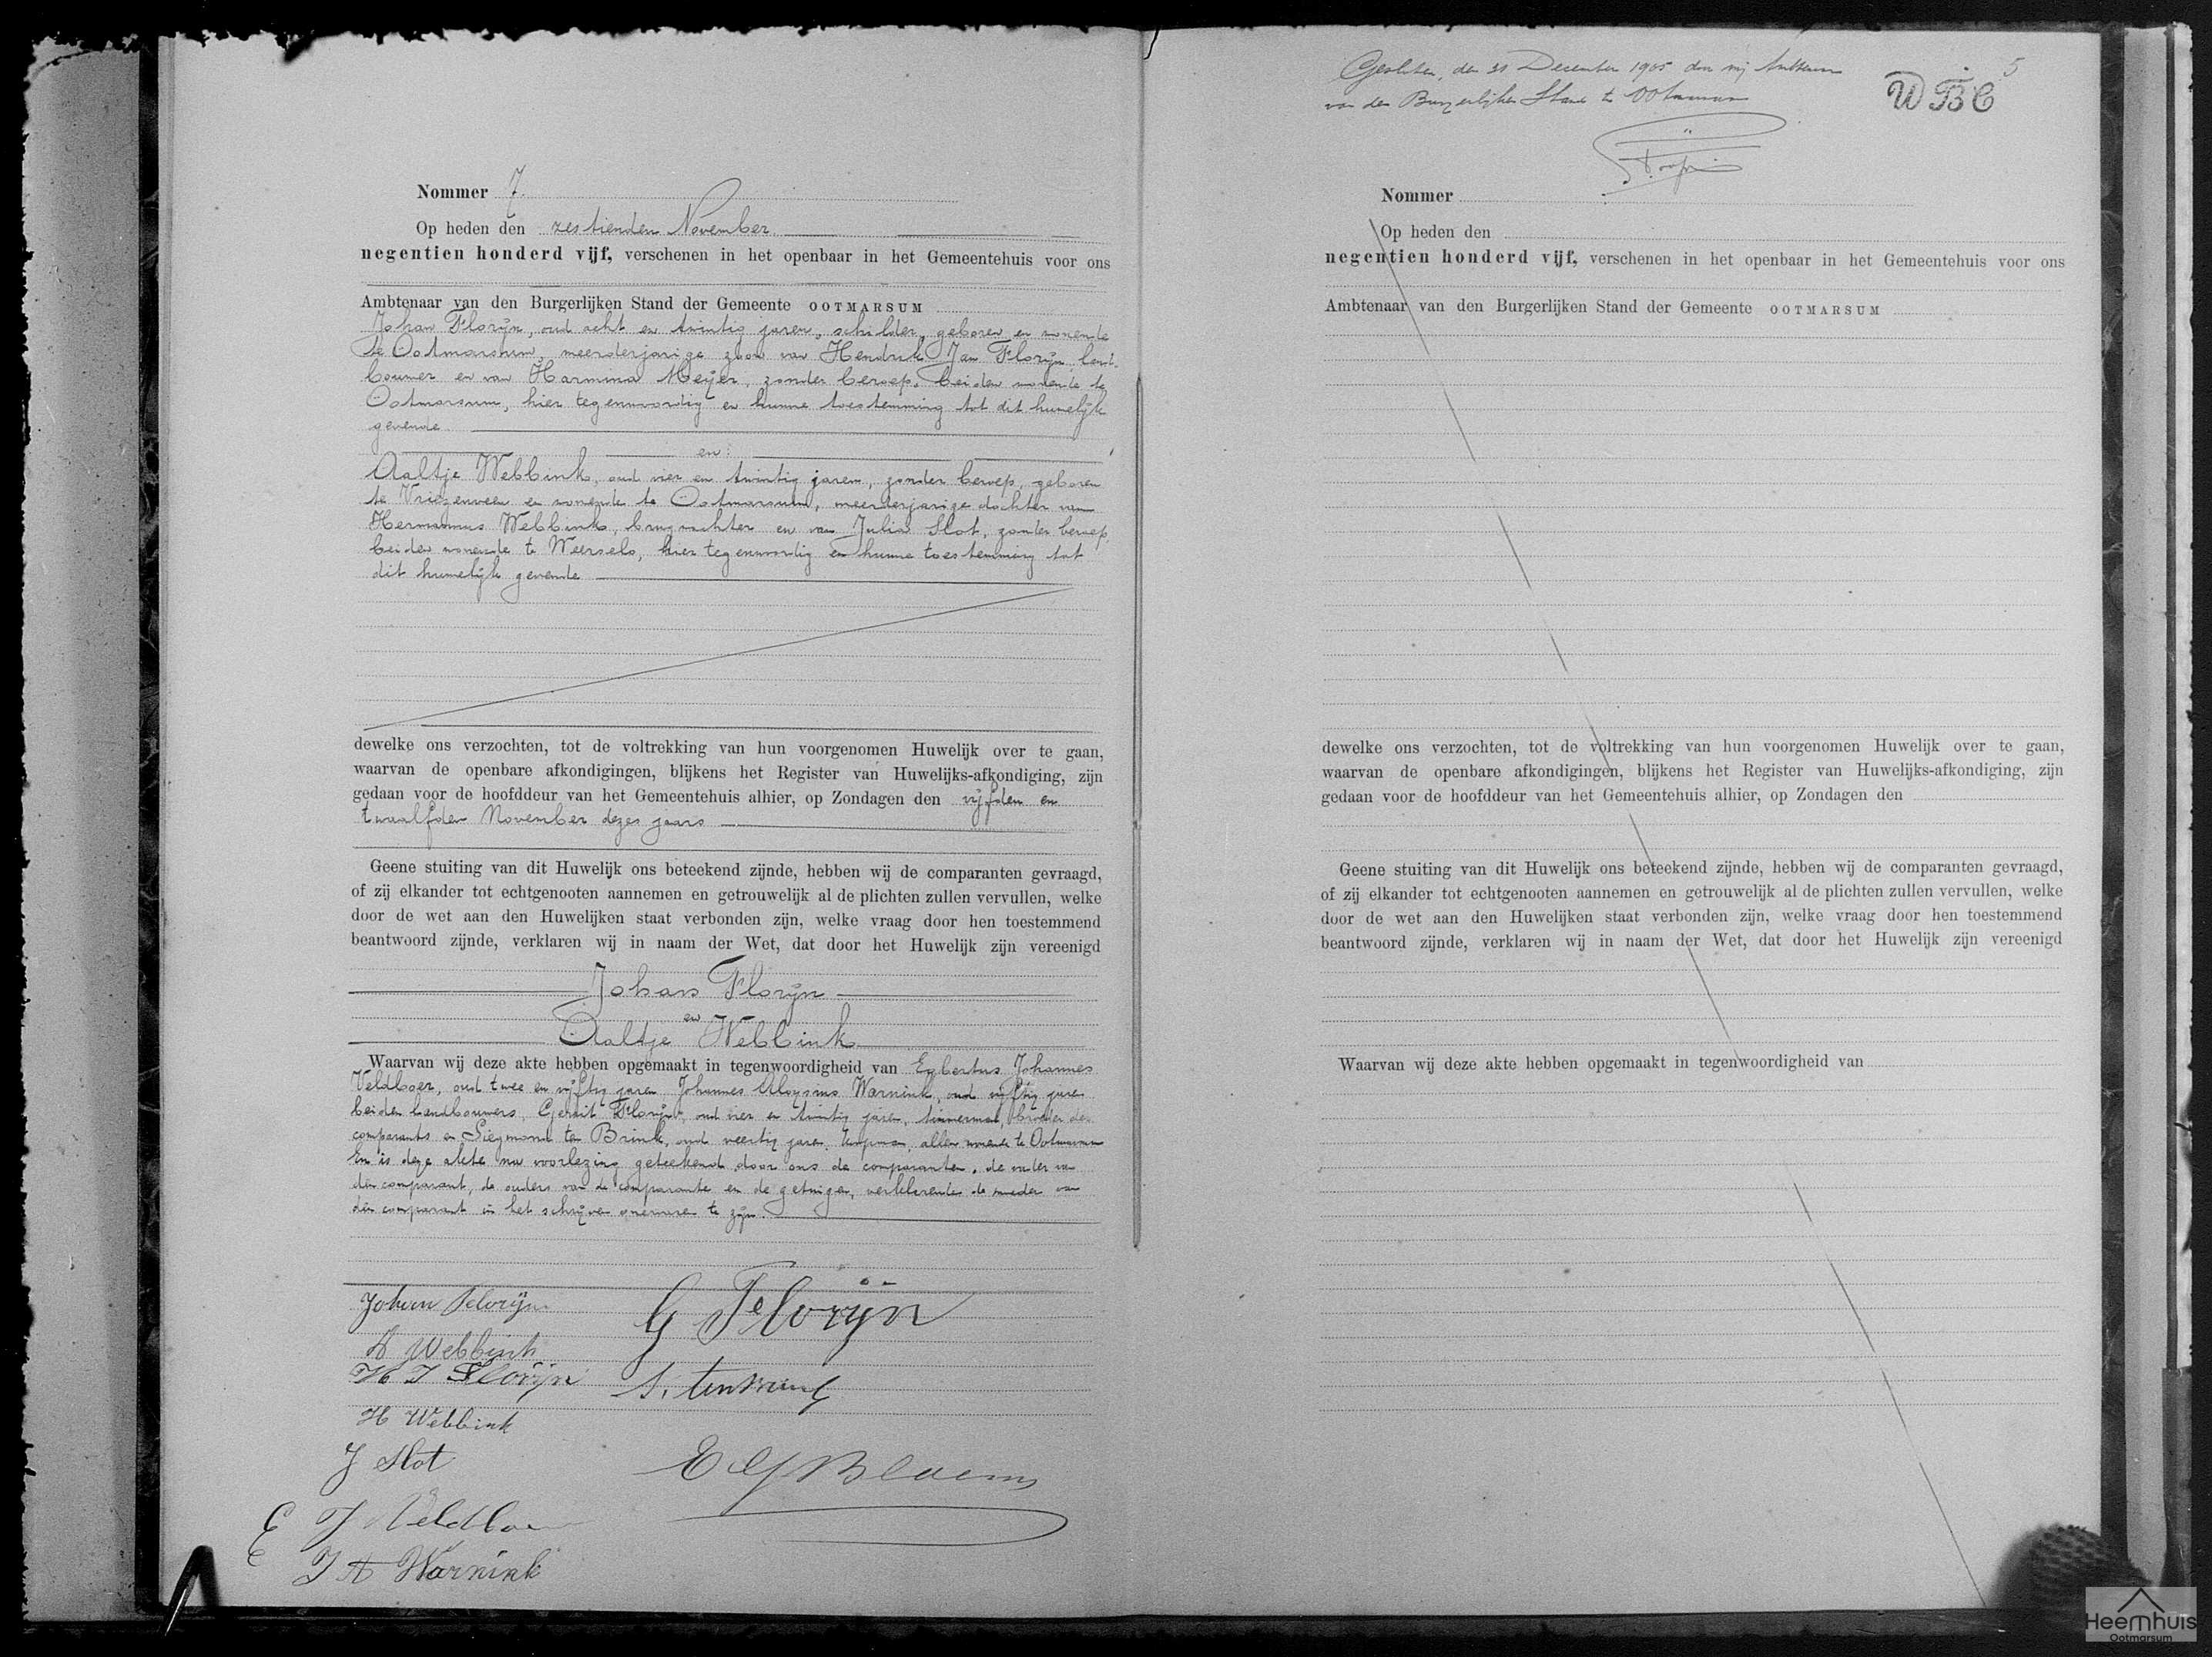 Nommer 7.
Op heden den zestienden November
negentien honderd vijf, verschenen in het openbaar in het Gemeentehuis voor ons
Ambtenaar van den Burgerlijken Stand der Gemeente OOTMARSUM
Johan Florijn, oud acht en twintig jaren, schilder, geboren en wonende
te Ootmarsum, meerderjarige zoon van Hendrik Jan Florijn, land-
bouwer en van Harmina Meijer, zonder beroep, beiden wonende te
Ootmarsum, hier tegenwoordig en hunne toestemming tot dit huwelijk
gevende
en:
Aaltje Webbink, oud vier en twintig jaren, zonder beroep, geboren
te Vriezenveen en wonende te Ootmarsum, meerderjarige dochter van
Hermannus Webbink, brugwachter en van Julia Slot, zonder beroep,
beiden wonende te Weerselo, hier tegenwoordig en hunne toestemming tot
dit huwelijk gevende
dewelke ons verzochten, tot de voltrekking van hun voorgenomen Huwelijk over te gaan,
waarvan de openbare afkondigingen, blijkens het Register van Huwelijks-afkondiging, zijn
gedaan voor de hoofddeur van het Gemeentehuis alhier, op Zondagen den vijfden en
twaalfden November dezes jaars
Geene stuiting van dit Huwelijk ons beteekend zijnde, hebben wij de comparanten gevraagd,
of zij elkander tot echtgenooten aannemen en getrouwelijk al de plichten zullen vervullen, welke
door de wet aan den Huwelijken staat verbonden zijn, welke vraag door hen toestemmend
beantwoord zijnde, verklaren wij in naam der Wet, dat door het Huwelijk zijn vereenigd
Johan Florijn
en
Aaltje Webbink
Waarvan wij deze akte hebben opgemaakt in tegenwoordigheid van Egbertus Johannes
Veldboer, oud twee en vijftig jaren Johannes Aloysius Warnink, oud vijftig jaren
beiden landbouwers, Gerrit Florijn, oud vier en twintig jaren, timmerman, broeder des
comparants en Siegmond ten Brink, oud veertig jaren, koopman, allen wonende te Ootmarsum
En is deze akte na voorlezing geteekend door ons de comparanten, de vader van
den comparant, de ouders van de comparante en de getuigen, verklarende de moeder van
den comparant in het schrijven onervaren te zijn.
Johan Florijn
G Florijn
A Webbink
H J Florijn
S. ten Brink
H Webbink
J Slot
E J Veldboer
J A Warnink
Gesloten, den 31 December 1905 door mij Ambtenaar
van den Burgerlijken Stand te Ootmarsum
5
W B C
Nommer
Op heden den
negentien honderd vijf, verschenen in het openbaar in het Gemeentehuis voor ons
Ambtenaar van den Burgerlijken Stand der Gemeente OOTMARSUM
dewelke ons verzochten, tot de voltrekking van hun voorgenomen Huwelijk over te gaan,
waarvan de openbare afkondigingen, blijkens het Register van Huwelijks-afkondiging, zijn
gedaan voor de hoofddeur van het Gemeentehuis alhier, op Zondagen den
Geene stuiting van dit Huwelijk ons beteekend zijnde, hebben wij de comparanten gevraagd,
of zij elkander tot echtgenooten aannemen en getrouwelijk al de plichten zullen vervullen, welke
door de wet aan den Huwelijken staat verbonden zijn, welke vraag door hen toestemmend
beantwoord zijnde, verklaren wij in naam der Wet, dat door het Huwelijk zijn vereenigd
Waarvan wij deze akte hebben opgemaakt in tegenwoordigheid van
Heemhuis
Ootmarsum